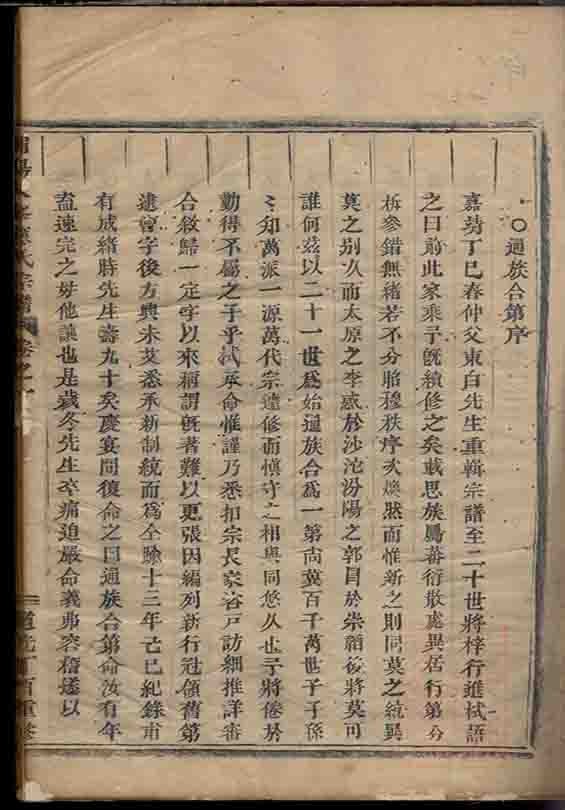 ○通族合第序
嘉靖丁巳春仲父東白先生重輯宗譜至二十世將梓行進栻語
之曰前此家乘予旣續修之矣載思族屬蕃衍散處異居行第分
析參錯無緒若不分昭穆秩序次煥然而惟新之則同莫之統異
莫之别久而太原之李惑於沙沱汾陽之郭冒於崇韜後將莫可
誰何兹以二十一世爲始通族合爲一第尚冀百千萬世子子孫
〻知萬派一源萬代宗遠修而慎守之相與同悠久也予將倦於
勤得不屬之子乎栻承命惟謹乃悉扣宗長家沿戸訪細推詳審
合敘歸一定字以來稱謂旣著難以更張因編列新行冠領舊第
建
字後方興未艾悉承新制統而爲仝餘十三年己巳紀錄甫
有成緒時先生壽九十矣慶宴間復命之曰通族合第命汝有年
盍速完之毋他讓也是歲冬先生卒痛迫嚴命義弗容稽遂以
陽
氏宗譜
卷之
道光丁酉重修